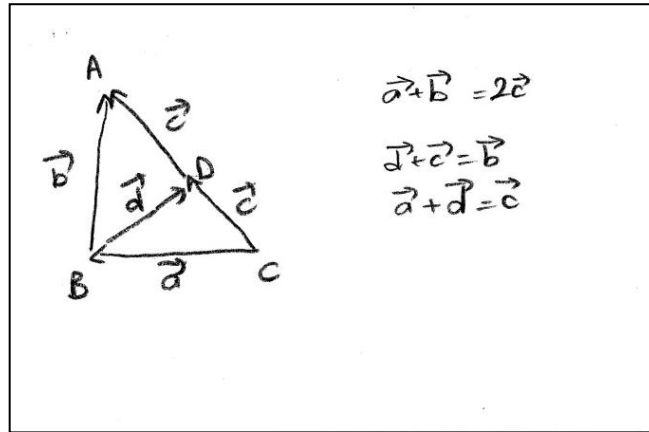 A
$\vec{c}$
$\vec{b}$
D
$\vec{d}$
$\vec{c}$
B
$\vec{a}$
C
$\vec{a}+\vec{b}=2\vec{c}$
$\vec{d}+\vec{c}=\vec{b}$
$\vec{a}+\vec{d}=\vec{c}$